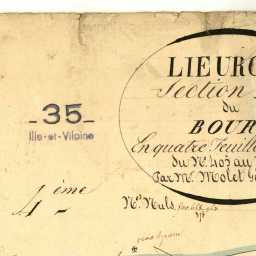 LIEURO
Section
du
BOUR
En quatre Feuille
du N.º 403 au
Par Mr. Molet Gé
35
Ille-et-Vilaine
4 ème
Nos. Nuls